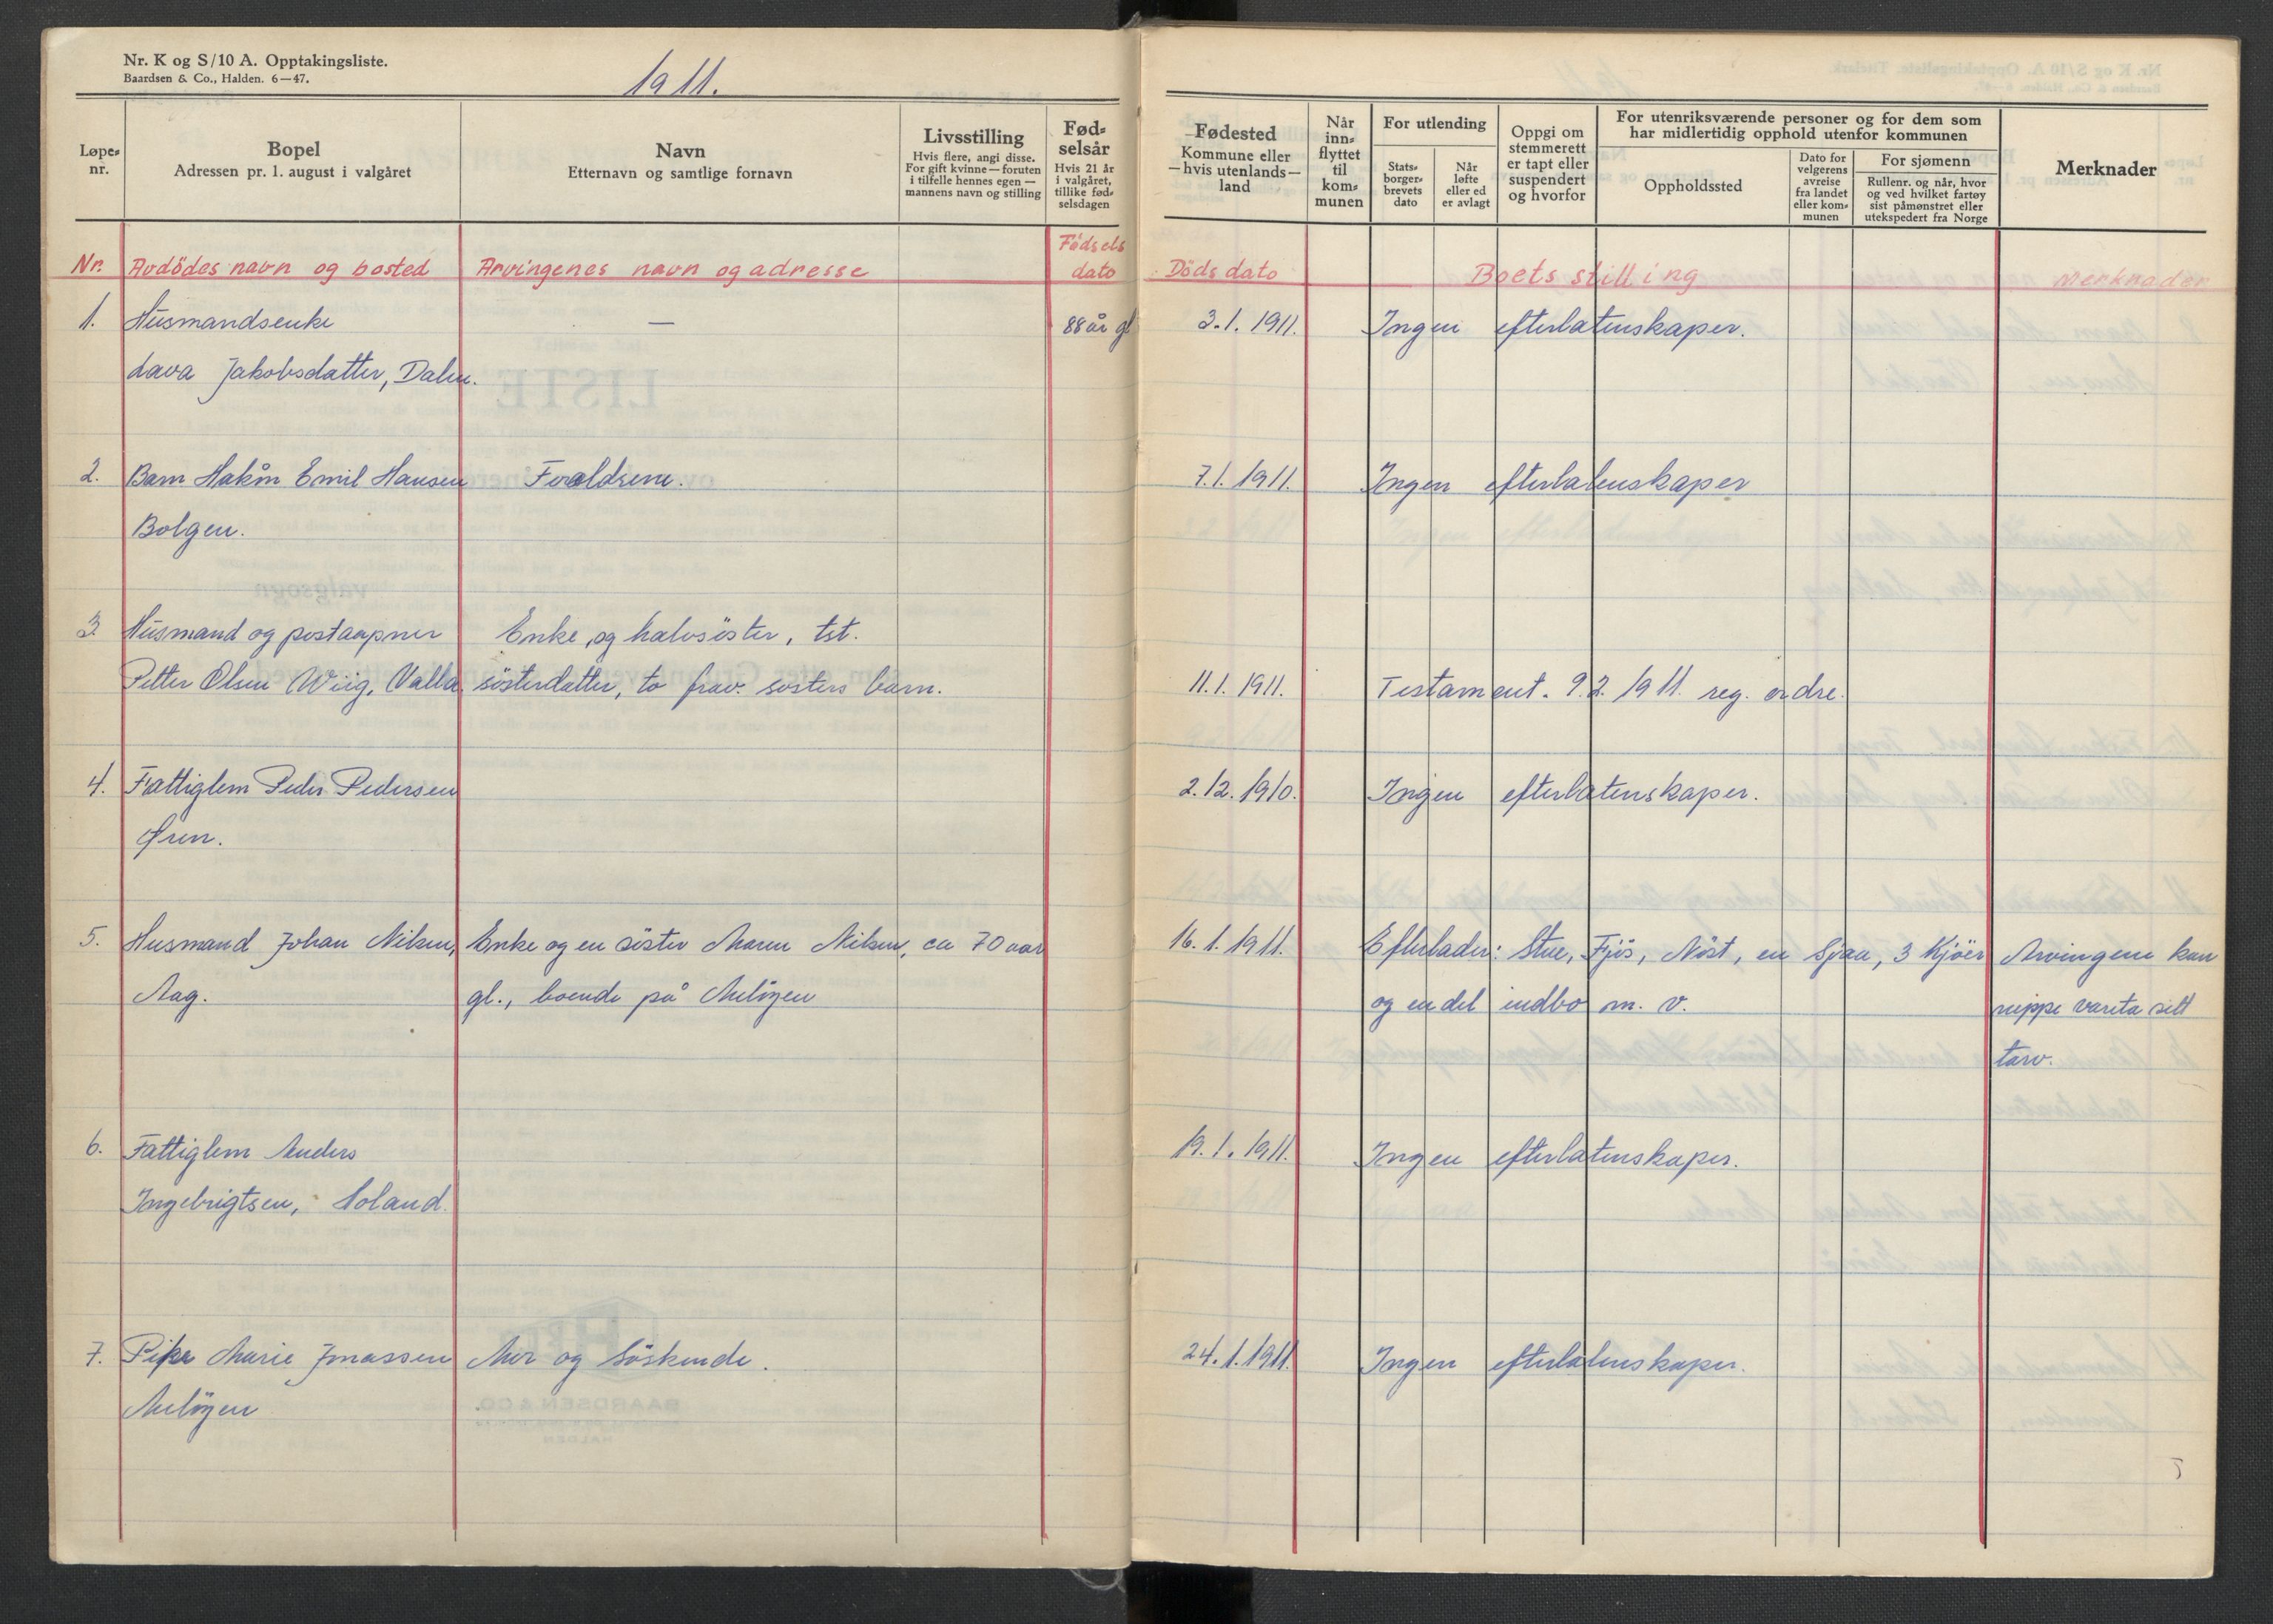 Nr. K og S/10 A. Opptakingsliste.
Baardsen & Co., Halden. 6—47.
1911.
Løpe-
nr.
Bopel
Adressen pr. 1. august i valgåret
Navn
Etternavn og samtlige fornavn
Livsstilling
Hvis flere, angi disse.
For gift kvinne — foruten
i tilfelle hennes egen —
mannens navn og stilling
Fød-
selsår
Hvis 21 år
i valgåret,
tillike fød-
selsdagen
Fødested
Kommune eller
— hvis utenlands —
land
Når
inn-
flyttet
til
kom-
munen
For utlending
Stats-
borger-
brevets
dato
Når
løfte
eller ed
er avlagt
Oppgi om
stemmerett
er tapt eller
suspendert
og hvorfor
For utenriksværende personer og for dem som
har midlertidig opphold utenfor kommunen
Oppholdssted
Dato for
velgerens
avreise
fra landet
eller kom-
munen
For sjømenn
Rullenr. og når, hvor
og ved hvilket fartøy
sist påmønstret eller
utekspedert fra Norge
Merknader
Nr. Avdödes navn og bosted Arvingenes navn og adresse Födsels
dato Döds dato Boets stilling Merknader
1. Husmandsenke — 88 år gl 3.1.1911. Ingen efterlatenskaper.
Lava Jakobsdatter, Dalen.
2. Barn Hakon Emil Hansen Foreldrene. 7.1.1911. Ingen efterlatenskaper
Bolgen.
3. Husmand og postaapner Enke og halvsöster, tst.
Petter Olsen Wiig, Valla sösterdatter, to frav. sösters barn. 11.1.1911. Testament. 9.2.1911. reg. ordre.
4. Fattiglem Peder Pedersen 2.12.1910. Ingen efterlatenskaper.
Øren.
5. Husmand Johan Nilsen, Enke og en söster Maren Nilsen, ca 70 aar 16.1.1911. Efterlader: Stue, Fjös, Nöst, en Sjaa, 3 Kjöer Arvingene kan
Aag. gl., boende på Meløyen og en del indbo m. v. neppe vareta sitt
tarv.
6. Fattiglem Anders 19.1.1911. Ingen efterlatenskaper.
Ingebrigtsen, Soland.
7. Pike Marie Jonassen Mor og Söskende. 24.1.1911. Ingen efterlatenskaper.
Meløyen